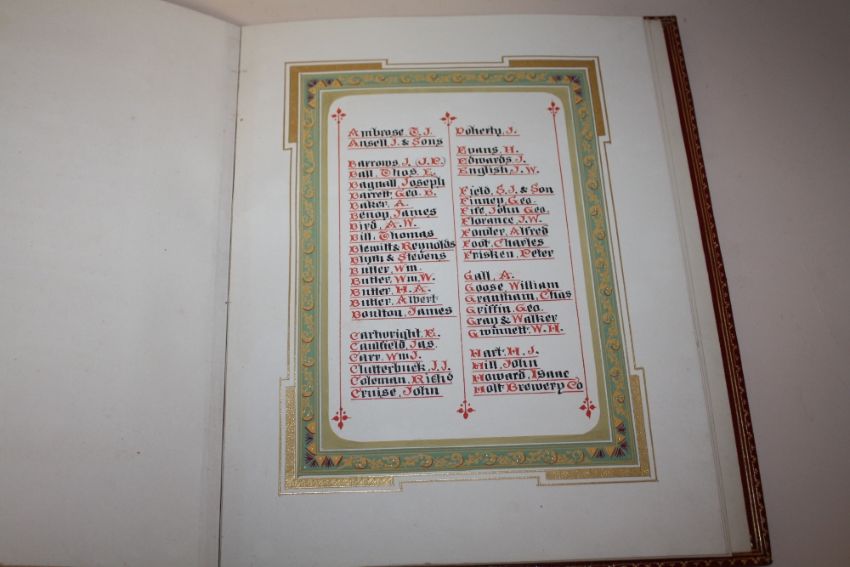 Ambrose, T. J.
Ansell J. & Sons
Barrows, J. (J.P.)
Ball, Thos. E.
Bagnall, Joseph
Barrett, Geo. B.
Baker, A.
Benon, James
Bird, A. W.
Bill, Thomas
Blewitt & Reynolds
Blyth & Stevens
Butler, Wm.
Butler, Wm. W.
Butler, H. A.
Butler, Albert
Boulton, James
Cartwright, E.
Caulfield, Jas.
Carr, Wm J.
Clutterbuck, J. J.
Coleman, Richd
Cruise, John
Doherty, J.
Evans, H.
Edwards, J.
English, J. W.
Field, S. J. & Son
Finney, Geo.
Fife, John Geo.
Florance, J. W.
Fowler, Alfred
Foot, Charles
Frisken, Peter
Gall, A.
Goose William
Grantham, Chas
Griffin, Geo.
Gray & Walker
Gwinnett, W. H.
Hart, H. J.
Hill, John
Howard, Isaac
Holt Brewery Co